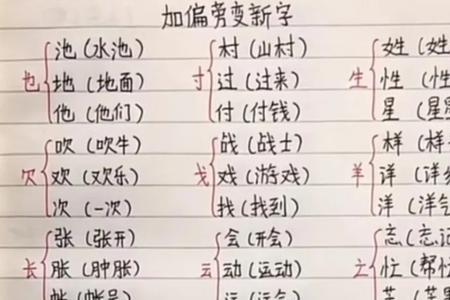 加偏旁变新字
池（水池） 村（山村） 姓（姓
也 地（地面） 寸 过（过来） 生 性（性
他（他们） 付（付钱） 星（星
吹（吹牛） 战（战士） 样（样
欠 欢（欢乐） 戈 戏（游戏） 羊 详（详
次（一次） 找（找到） 洋（洋气
张（张开） 会（开会） 忘（忘记
长 胀（肿胀） 云 动（运动） 亡 忙（帮忙
帐（帐号） 运（运气）